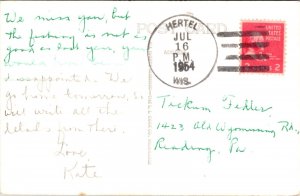 We miss you, but
the fishing is not as
good as last year, you
disappoint
We
go from tomorrow, so
will write all the
details from there.
Love
Kate
POST CARD
HERTEL
JUL
16
P.M.
1954
WIS.
UNITED STATES
POSTAGE
2
Tackum Fehler
1423 Old Wyomissing Rd.
Reading, Pa.